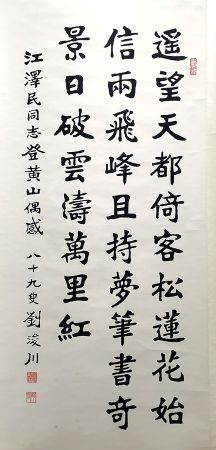 遥望天都倚客松蓮花始
信兩飛峰且持夢筆書奇
景日破雲濤萬里紅
江澤民同志登黄山偶感
八十九叟劉浚川